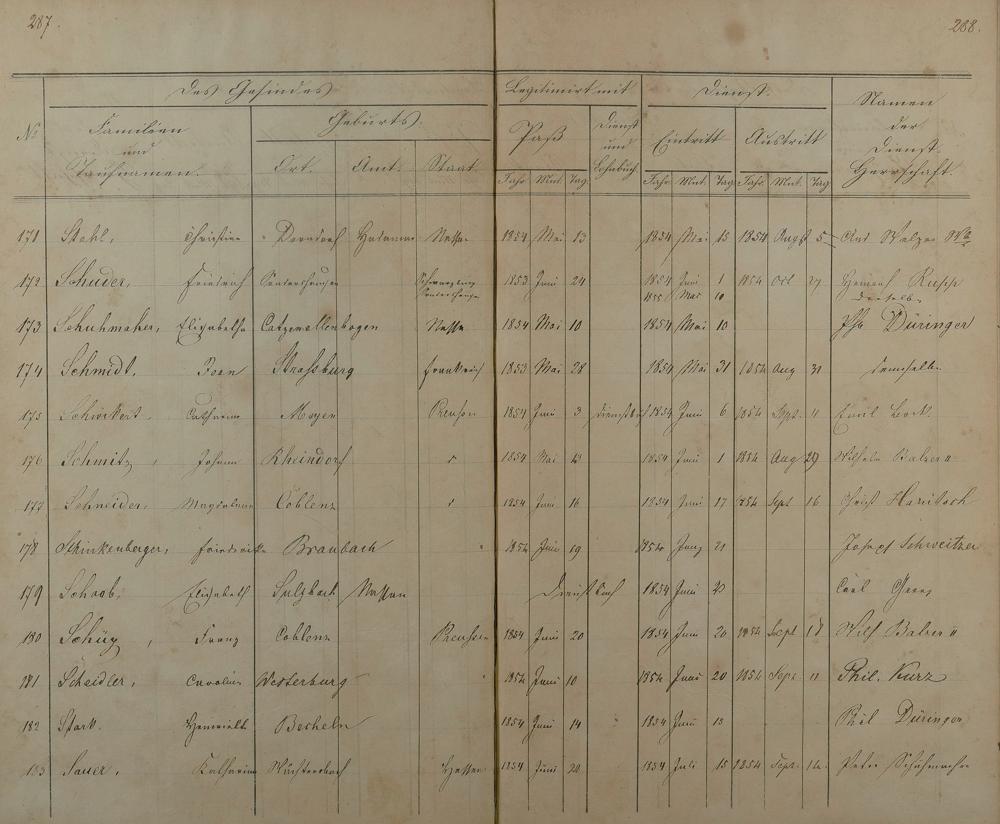 287.
288.
Des Gesindes
Legitimirt mit
Dienst.
Namen der Dienst Herrschaft.
No
Familien und Taufnamen.
Geburts.
Paß
Dienst und Lohnbuch.
Eintritt
Austritt
Ort. Amt. Staat.
Jahr Mnt. Tag Jahr. Mnt. Tag Jahr. Mnt. Tag
171 Stahl, Christian Hadamar Nassau 1854 Mai 13 1854 Mai 15 1854 Augst 5
172 Schuder, Friedrich Sondershausen Schwarzburg Sondershausen 1853 Juni 24 1854 Juni 1 1854 Oct 27 Heinrich Rupp
1855 Mai 10 derselbe
173 Schuhmacher, Elisabetha Catzenellenbogen Nassau 1854 Mai 10 1854 Mai 10 Düringer
174 Schmidt, Strassburg Frankreich 1853 Mai 28 1854 Mai 31 1854 Aug 31 demselben
175 Catharina Mayen Preussen 1854 Juni 3 1854 Juni 6 1854 Sept. 11 Emil
176 Schmitz, Johann Rheindorf 1854 Mai 1854 Juni 1 1854 Aug 29 Wilhelm Balzer
177 Schneider, Magdalena Coblenz 1854 Juni 16 1854 Juni 17 1854 Sept 16
178 Schinkenberger, Friedericke Braubach 1854 Juni 19 1854 Juny 21 Josef Schweitzer
179 Schwob, Elisabeth Sulzbach Nassau Dienstbuch 1854 Juni Carl
180 Schüy, Franz Coblenz Preussen 1854 Juni 20 1854 Juni 20 1854 Sept 18 Wilh Balzer
181 Scheidler, Caroline Westerburg 1854 Juni 10 1854 Juni 20 1854 Sept. 11 Phil. Kurz
182 Stark. Henriette Becheln 1854 Juni 14 1854 Juni 15 Phil Düringer
183 Sauer, Katharina Hessen 1854 Juni 20 1854 Juli 15 1854 Sept. 14 Peter Schuhmacher